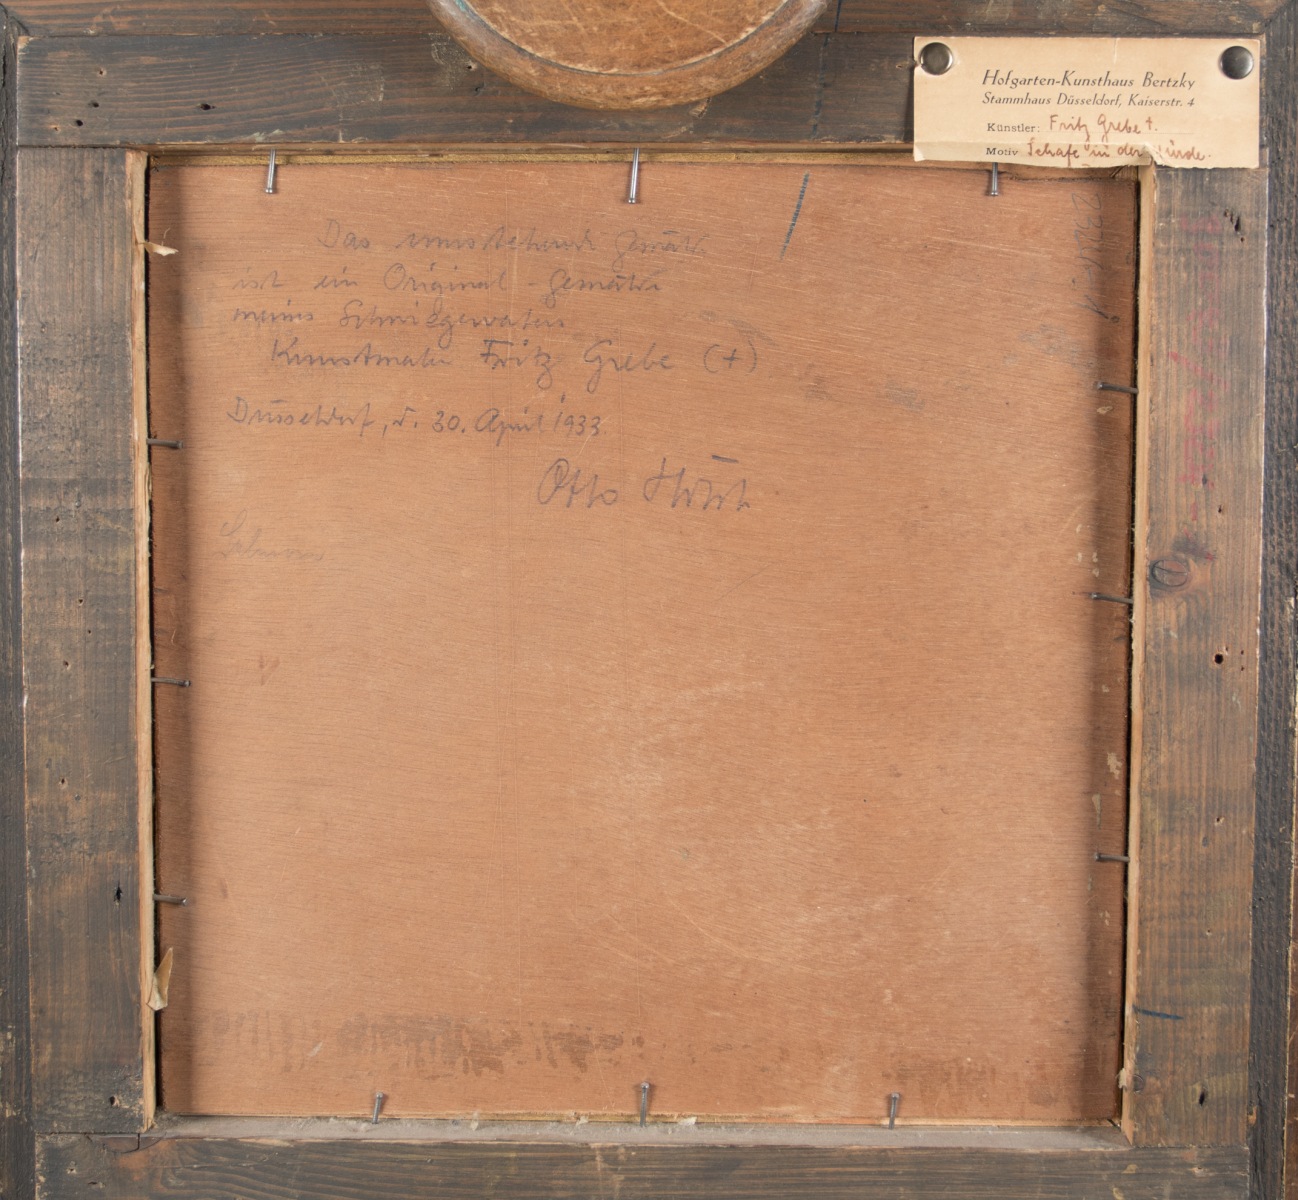 Hofgarten-Kunsthaus Bertzky
Stammhaus Düsseldorf, Kaiserstr. 4
Künstler: Fritz Grebe †.
Motiv Schafe in der Hürde.
Das umstehende Gemälde
ist ein Original-Gemälde
meines Schwiegervaters
Kunstmaler Fritz Grebe (+)
Düsseldorf, d. 30. April 1933
Otto